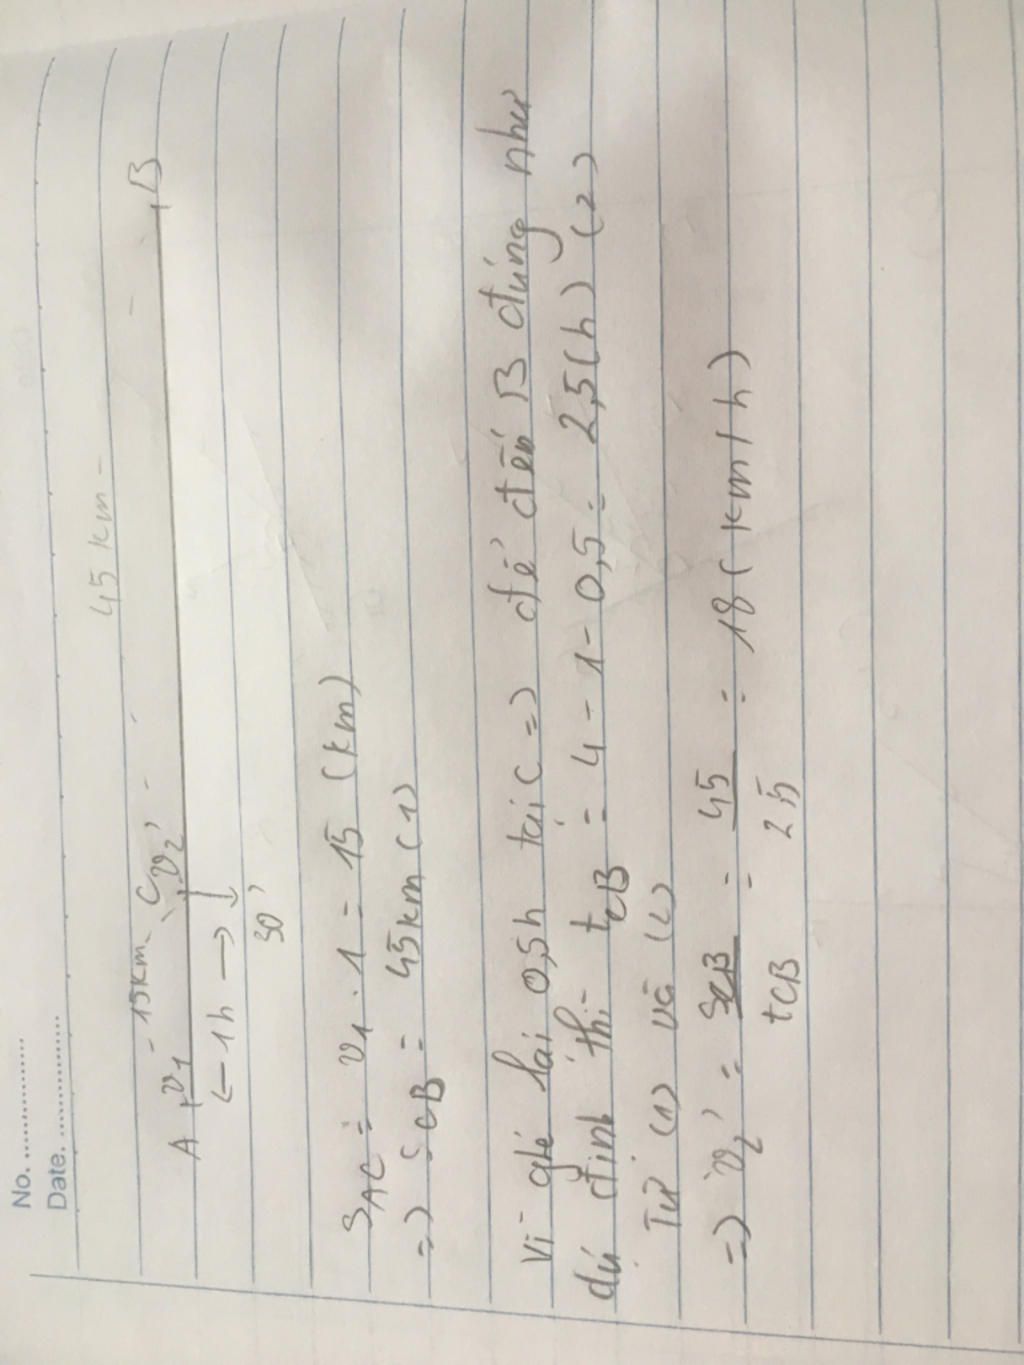 No. ....................
Date. ....................
45 km
- 15km - C
A v₁ v₂' B
← 1h →
30'
S_AC = v₁ . 1 = 15 (km)
=> S_CB = 45km (1)
Vì ghé lại 0,5h tại C => để đến B đúng như
dự định thì t_CB = 4 - 1 - 0,5 = 2,5(h) (2)
Từ (1) và (2)
=> v₂' = S_CB / t_CB = 45 / 2,5 = 18 (km/h)